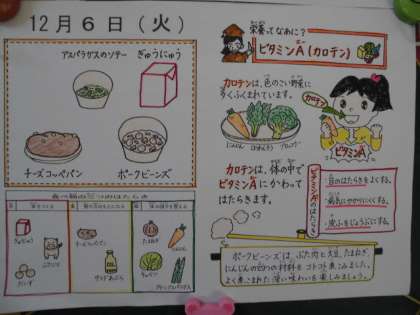 12月6日(火)
アスパラガスのソテー
ぎゅうにゅう
チーズコッペパン
ポークビーンズ
ぎゅうにゅう
だいず
たまねぎ
にんじん
栄養ってなあに?
ビタミンA(カロテン)
カロテンは、色のこい野菜に
多くふくまれています。
にんじん
ほうれんそう
ブロッコリー
カロテン
ビタミンA
カロテンは、体の中で
ビタミンAにかわって
はたらきます。
ビタミンAのはたらき
・目のはたらきをよくする。
・病気にかかりにくくする。
・皮ふをじょうぶにする。
ポークビーンズは、ぶた肉と大豆、たまねぎ、
にんじんの4つの材料をコトコト煮こみました。
よく煮こまれた深い味わいを楽しみましょう。